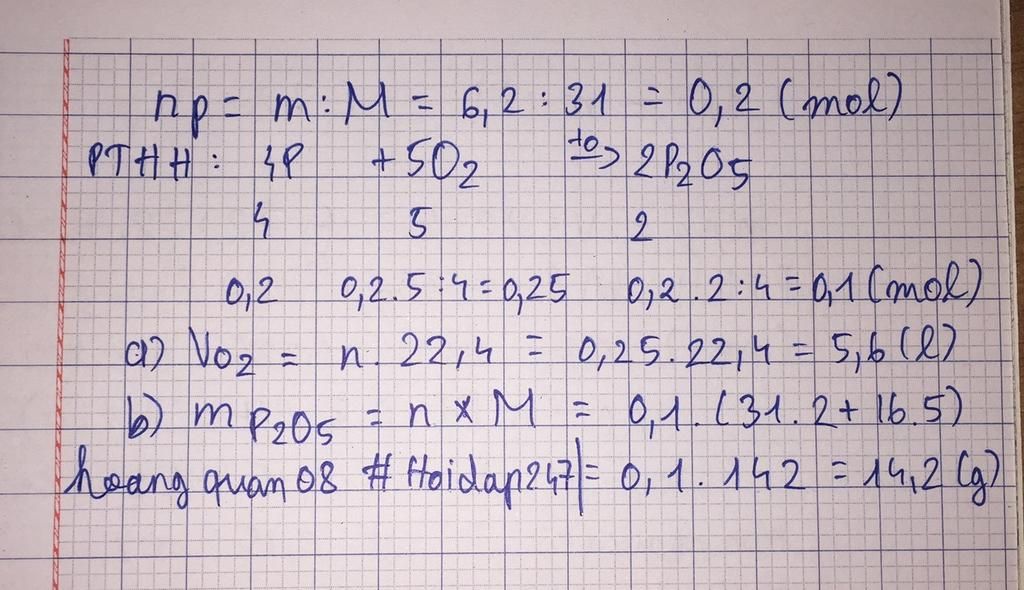 np = m : M = 6,2 : 31 = 0,2 (mol)
PTHH : 4P + 5O2 to-> 2P2O5
4 5 2
0,2 0,2.5:4=0,25 0,2.2:4=0,1(mol)
a) VO2 = n. 22,4 = 0,25.22,4 = 5,6(l)
b) m P2O5 = n x M = 0,1.(31.2+16.5)
hoang quan 08 # Hoidap247| = 0,1.142 = 14,2(g)